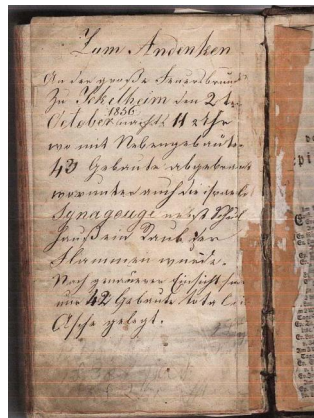 Zum Andenken
An den große Feuersbrunst
Zu Ickelheim den 2te
October 1856 nachts 11 Uhr
wo mit Nebengebäute
43 Gebäute abgebrant
worunter auch die israel
Synagouge nebst Schul
hauß ein Raub der
Flammen wurde.
Nach genauerer Einsicht
nur 42 Gebäute total
Asche gelegt.